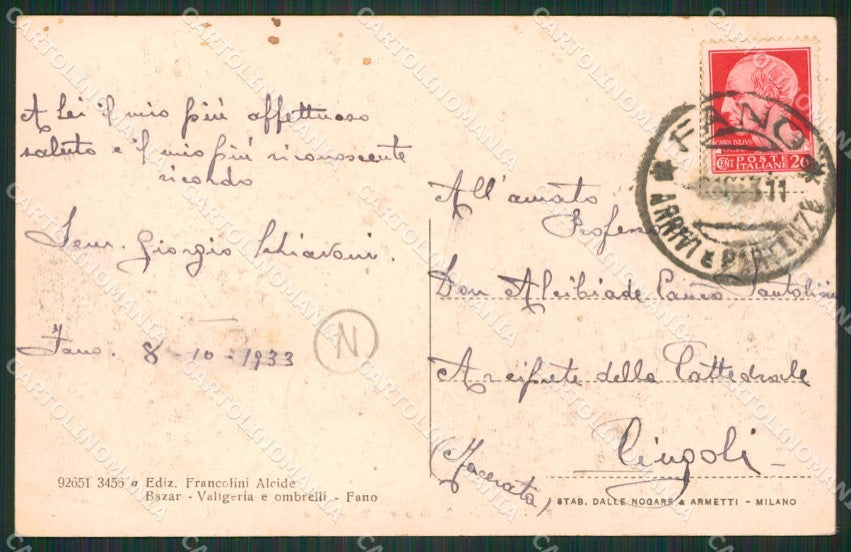 A lei il mio più affettuoso
saluto e il mio più riconoscente
ricordo
Sem. Giorgio Schiavoni.
Fano. 8-10-1933
N
92651 3456 a Ediz. Francolini Alcide
Bazar - Valigeria e ombrelli - Fano
FANO
ARRIVI E PARTENZE
CENT POSTE ITALIANE 20
All'amato
Profess
Don Alcibiade
Arciprete della Cattedrale
Cingoli
(Macerata)
STAB. DALLE NOGARE & ARMETTI - MILANO
CARTOLINOMANIA